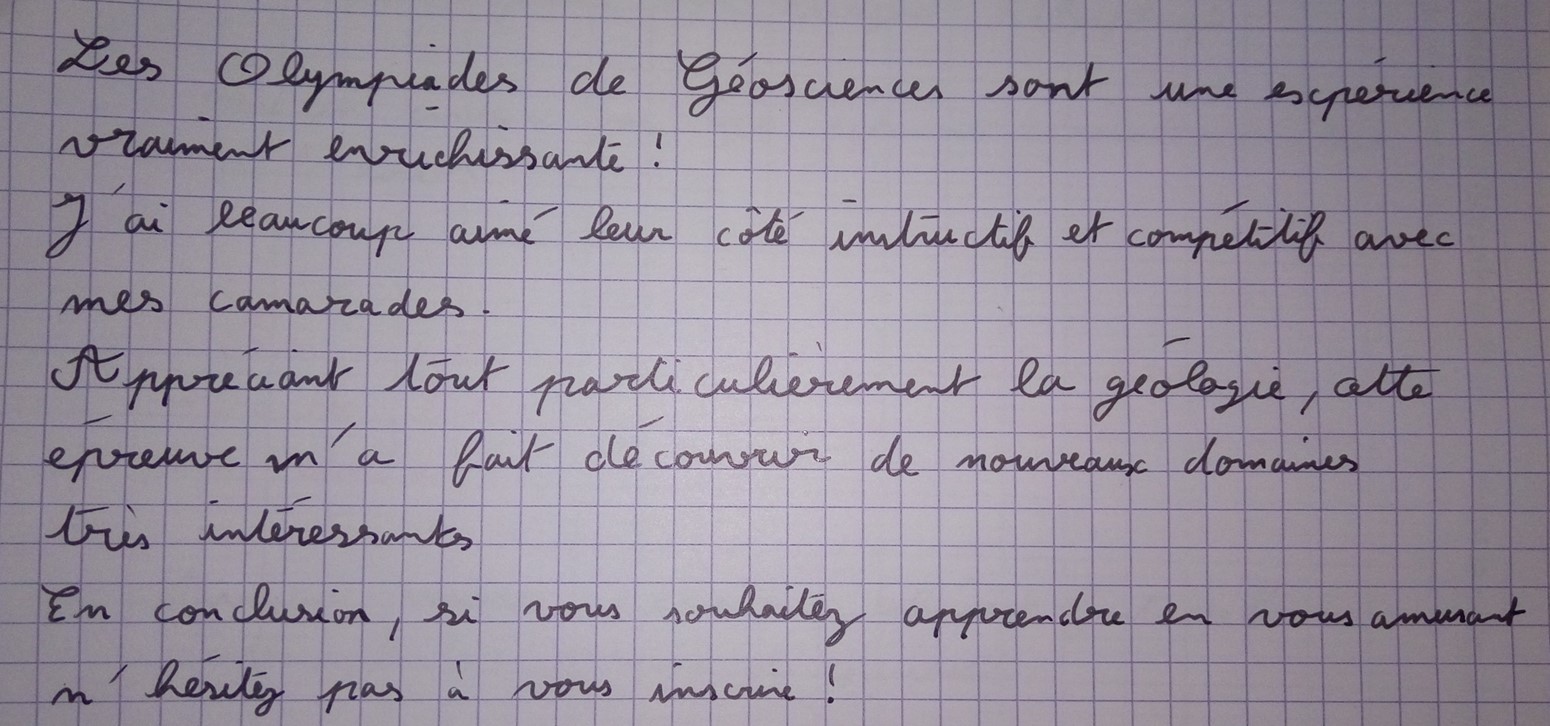 Les Olympiades de Géosciences sont une expérience
vraiment enrichissante !
J'ai beaucoup aimé leur côté instructif et compétitif avec
mes camarades.
Appréciant tout particulièrement la géologie, cette
épreuve m'a fait découvrir de nouveaux domaines
très intéressants
En conclusion, si vous souhaitez apprendre en vous amusant
n'hésitez pas à vous inscrire !